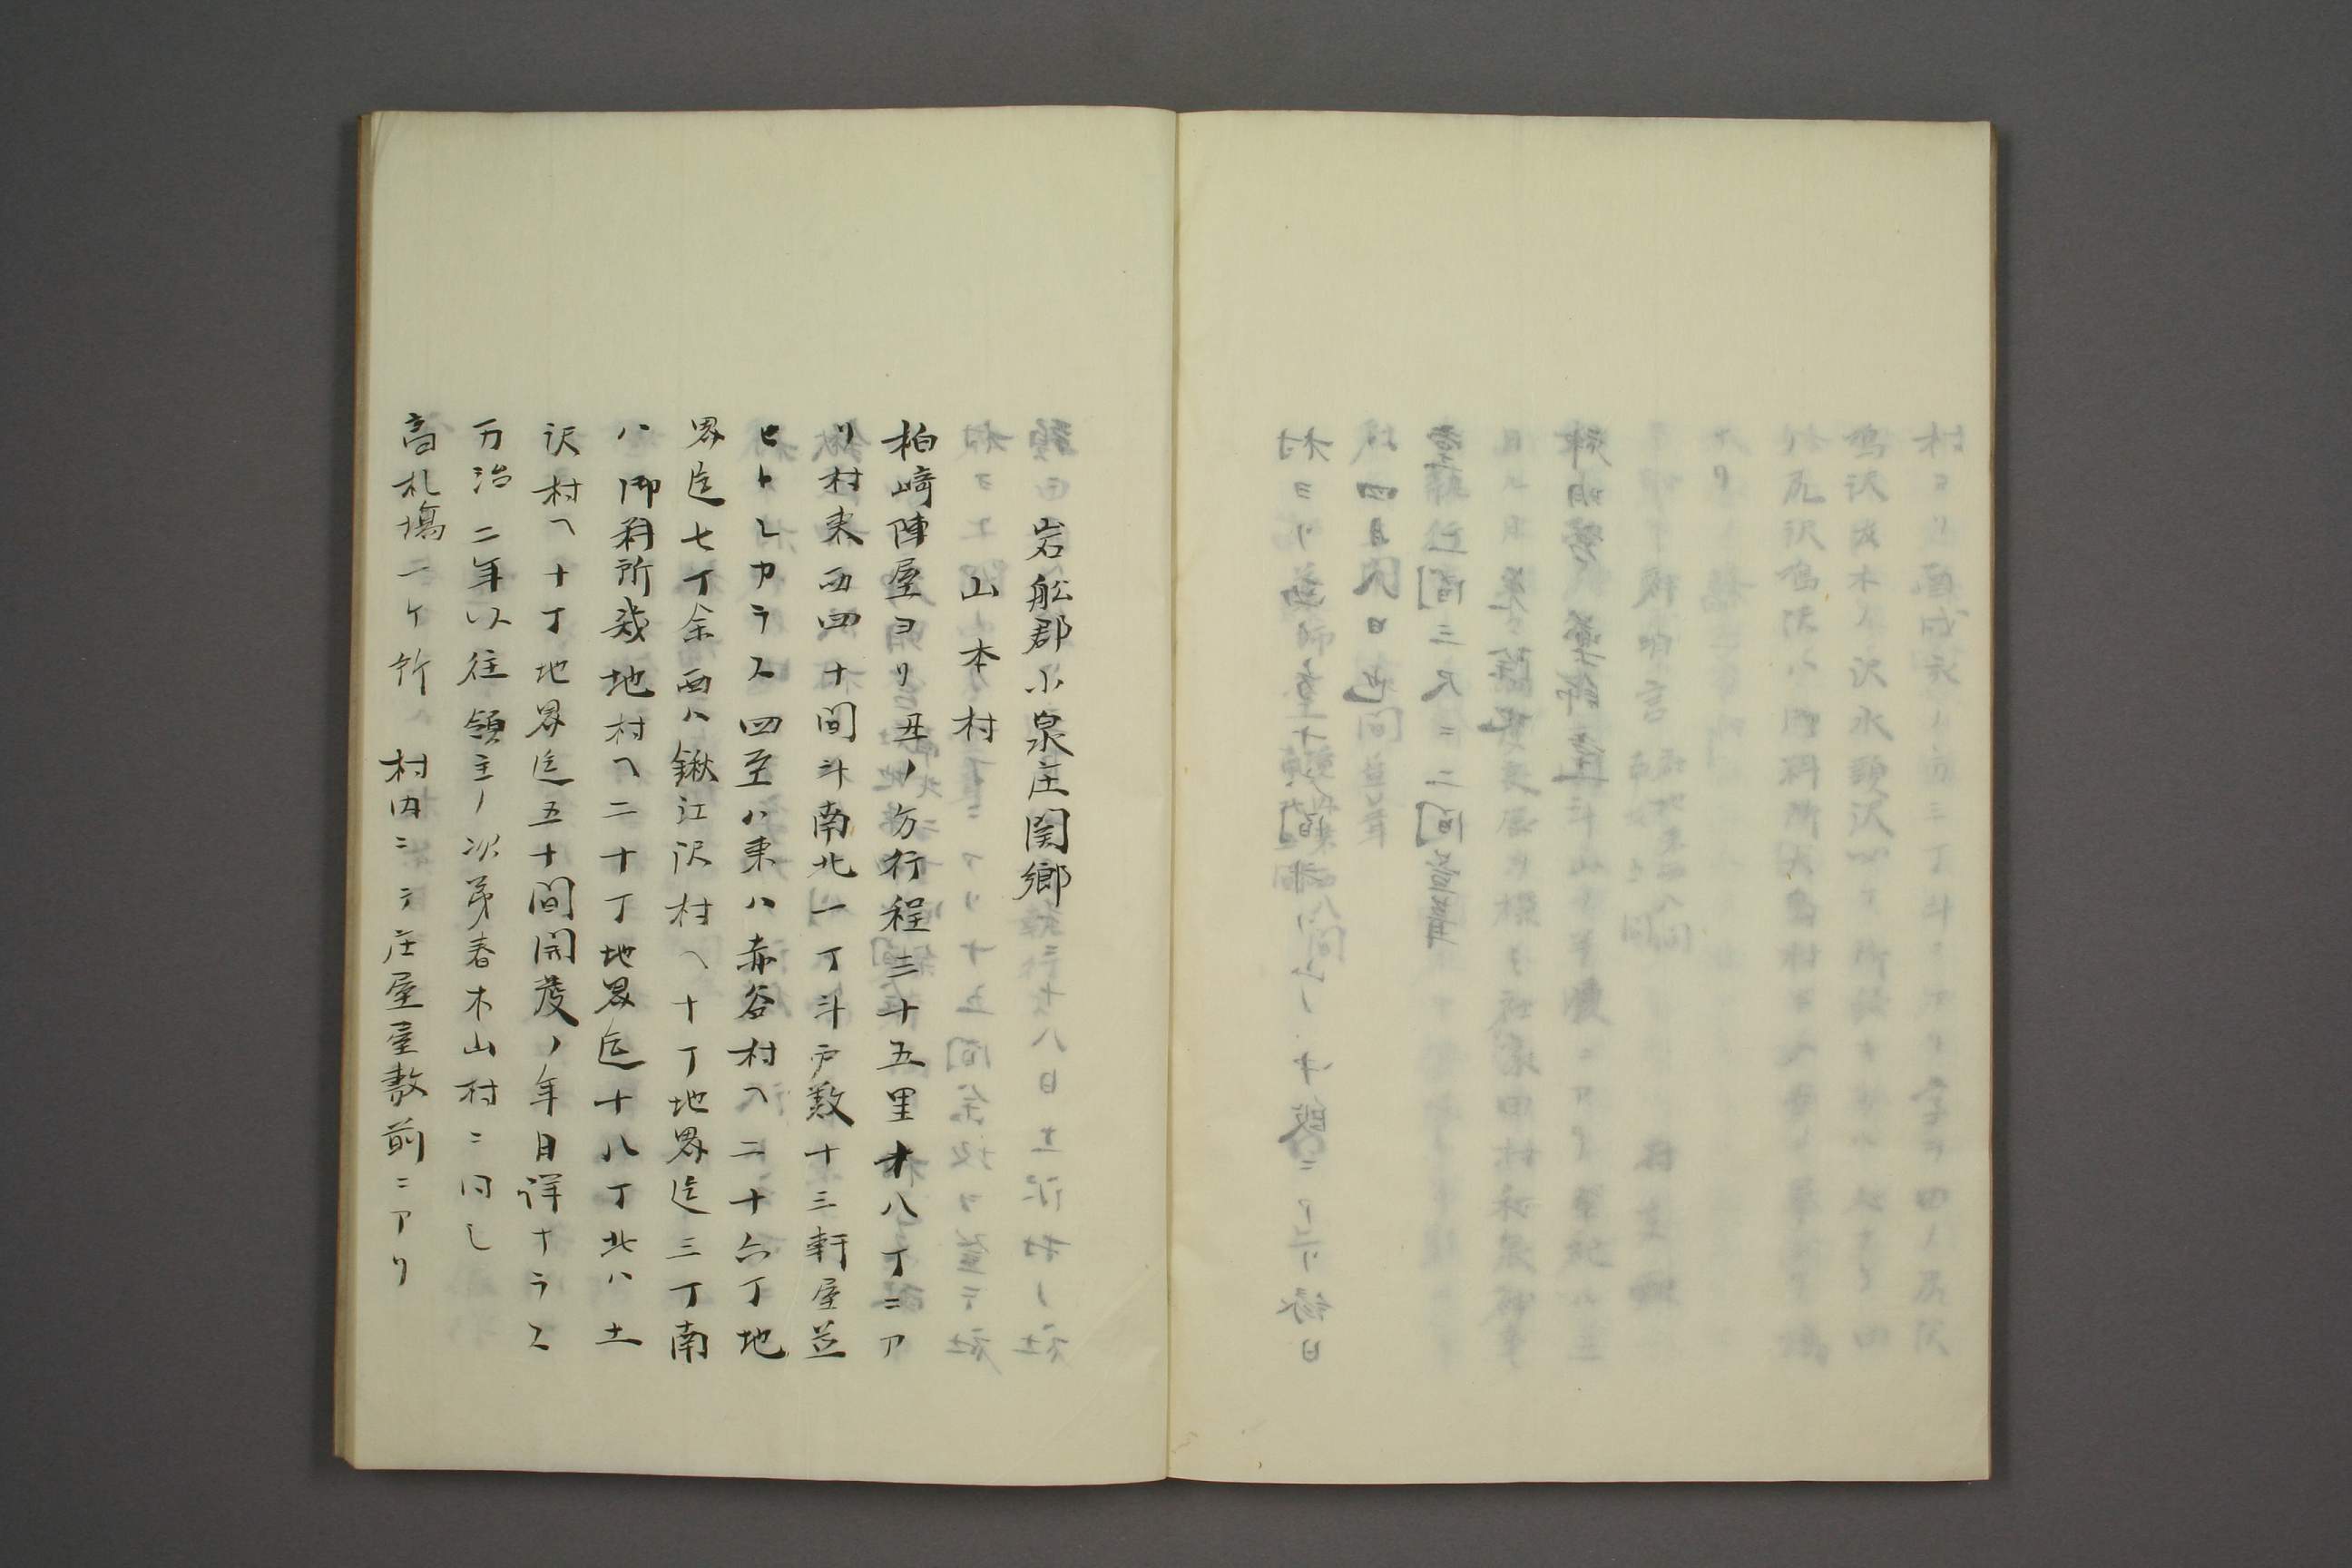 岩舩郡小泉庄関郷
山本村
柏﨑陣屋ヨリ丑ノ方行程三十五里十八丁ニア
リ村東西四十間斗南北一丁斗戸数十三軒屋並
ヒトシカラス四至ハ東ハ赤谷村ヘ二十六丁地
界迄七丁余西ハ鍬江沢村ヘ十丁地界迄三丁南
ハ御料所幾地村ヘ二十丁地界迄十八丁北ハ土
沢村ヘ十丁地界迄五十間開發ノ年月詳ナラス
万治二年以往領主ノ次第春木山村ニ同シ
高札塲一ケ所ハ村内ニテ庄屋屋敷前ニアリ